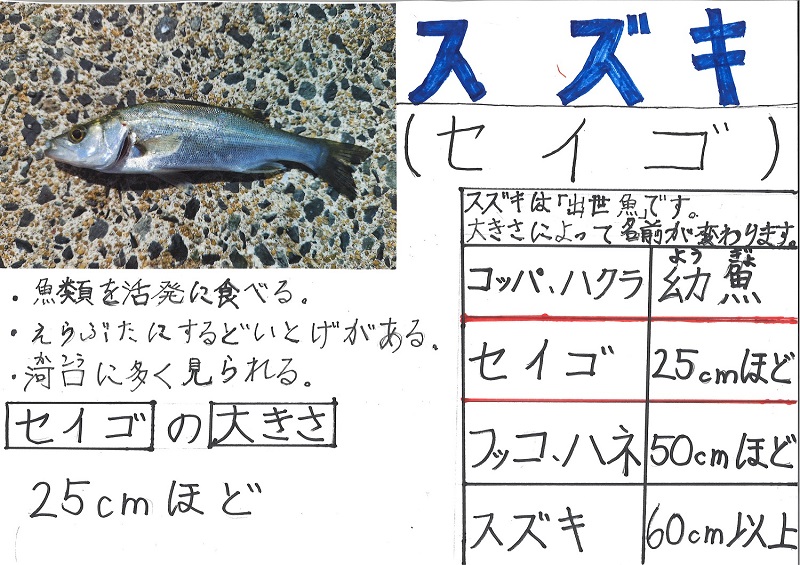 スズキ
(セイゴ)
・魚類を活発に食べる。
・えらぶたにするどいとげがある。
かこう
・河口に多く見られる。
セイゴの大きさ
25cmほど
スズキは「出世魚」です。
大きさによって名前が変わります。
ようぎょ
コッパ、ハクラ 幼魚
セイゴ 25cmほど
フッコ、ハネ 50cmほど
スズキ 60cm以上